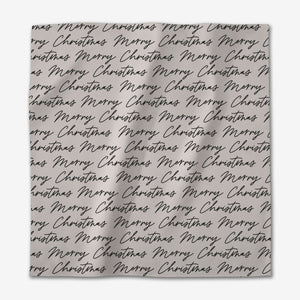 Merry Christmas Merry Christmas
Christmas Merry Christmas Merry
Merry Christmas Merry Christmas
Christmas Merry Christmas Merry
Merry Christmas Merry Christmas
Christmas Merry Christmas Merry
Merry Christmas Merry Christmas
Christmas Merry Christmas Merry
Merry Christmas Merry Christmas
Christmas Merry Christmas Merry
Merry Christmas Merry Christmas
Christmas Merry Christmas Merry
Merry Christmas Merry Christmas
Christmas Merry Christmas Merry